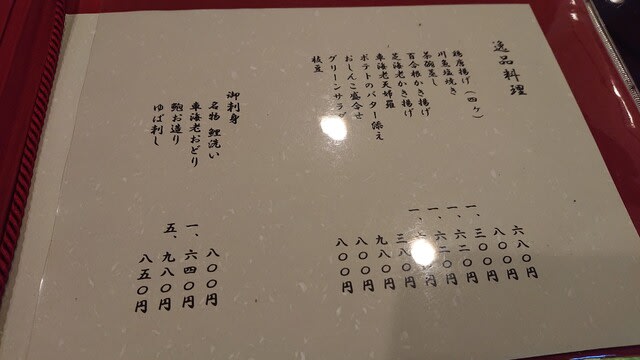 逸品料理
鶏唐揚げ(四ヶ)
川魚塩焼き
茶碗蒸し
百合根かき揚げ
芝海老かき揚げ
車海老天婦羅
ポテトのバター添え
おしんこ盛合せ
グリーンサラダ
枝豆
六八〇円
八〇〇円
一、三〇〇円
一、六二〇円
一、六二〇円
九八〇円
八〇〇円
八〇〇円
御刺身
名物 鯉洗い
車海老おどり
鮑お造り
ゆば刺し
八〇〇円
一、六四〇円
五、九八〇円
八五〇円